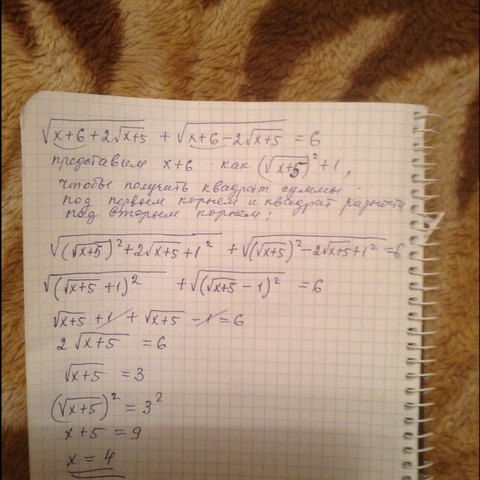 √(x+6+2√(x+5)) + √(x+6-2√(x+5)) = 6
представим x+6 как (√(x+5))²+1,
чтобы получить квадрат суммы
под первым корнем и квадрат разности
под вторым корнем:
√((√(x+5))²+2√(x+5)+1²) + √((√(x+5))²-2√(x+5)+1²) = 6
√((√(x+5)+1)²) + √((√(x+5)-1)²) = 6
√(x+5)+1+√(x+5)-1=6
2√(x+5) = 6
√(x+5) = 3
(√(x+5))² = 3²
x+5 = 9
x = 4